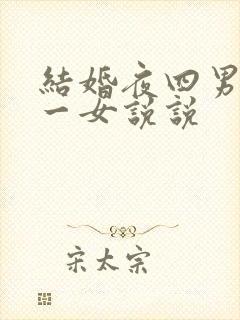 結婚夜四男
一女說說
宋太宗